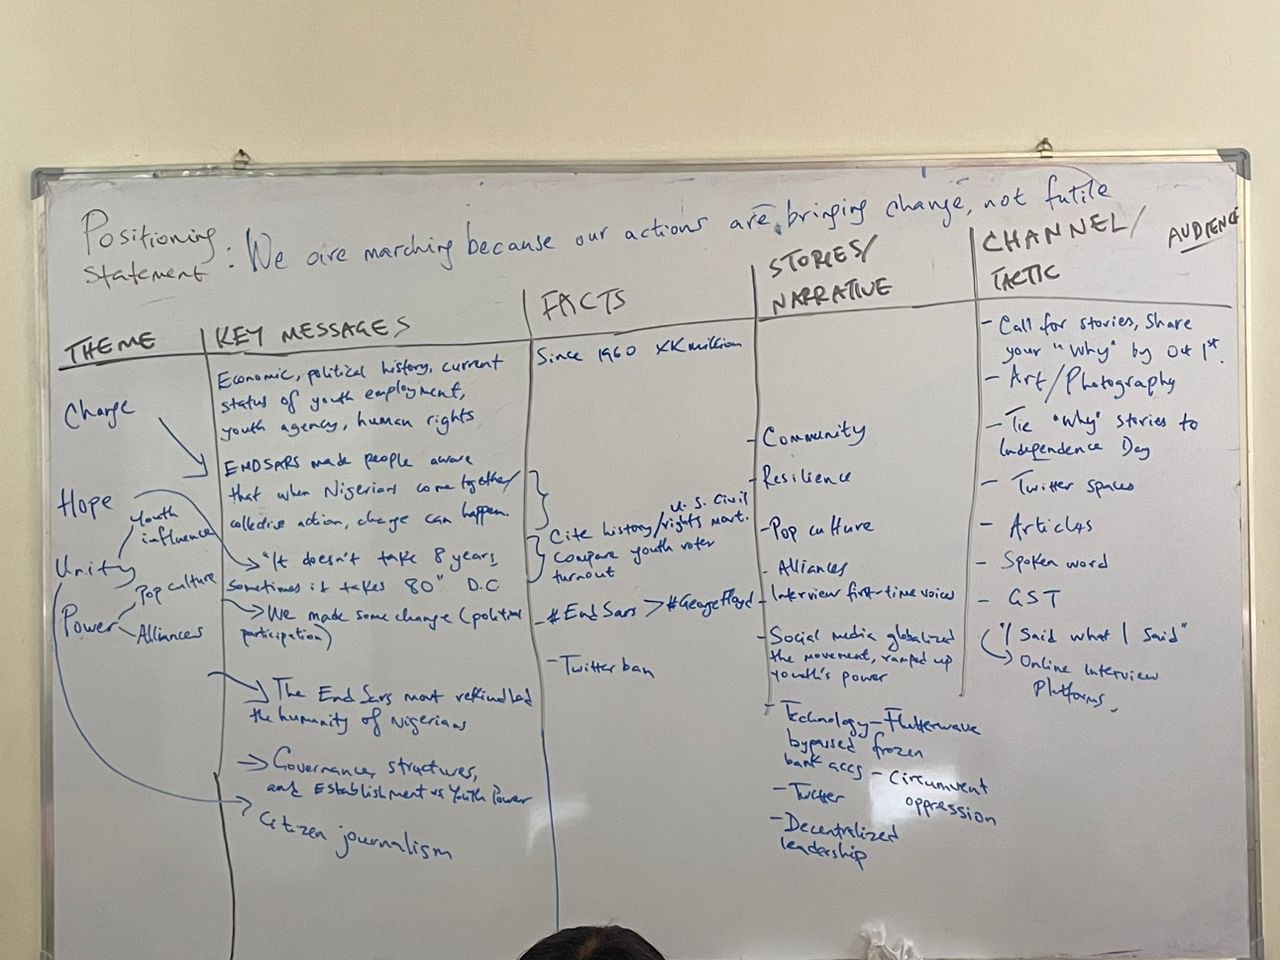 Positioning
Statement: We are marching because our actions are bringing change, not futile
THEME
Change
Hope
Youth
influence
Unity
Pop culture
Power
Alliances
KEY MESSAGES
Economic, political history, current
status of youth employment,
youth agency, human rights
ENDSARS made people aware
that when Nigerians come together/
collective action, change can happen.
"It doesn't take 8 years,
sometimes it takes 80" D.C
We made some change (political
participation)
The End Sars movt rekindled
the humanity of Nigerians
Governance, structures,
and Establishment vs Youth Power
Citizen journalism
FACTS
Since 1960 XX million
U.S. Civil
Cite history/rights movt.
Compare youth voter
turnout
- #EndSars > #GeorgeFloyd
- Twitter ban
STORIES/
NARRATIVE
- Community
- Resilience
- Pop culture
- Alliances
- Interview first-time voices
- Social media globalized
the movement, ramped up
youth's power
- Technology - Flutterwave
bypassed frozen
bank accs - Circumvent
oppression
- Twitter
- Decentralized
leadership
CHANNEL/
TACTIC
AUDIENCE
- Call for stories, share
your "Why" by Oct 1st.
- Art/Photography
- Tie "Why" stories to
Independence Day
- Twitter spaces
- Articles
- Spoken word
- GST
- "I Said what I said"
Online Interview
Platforms.